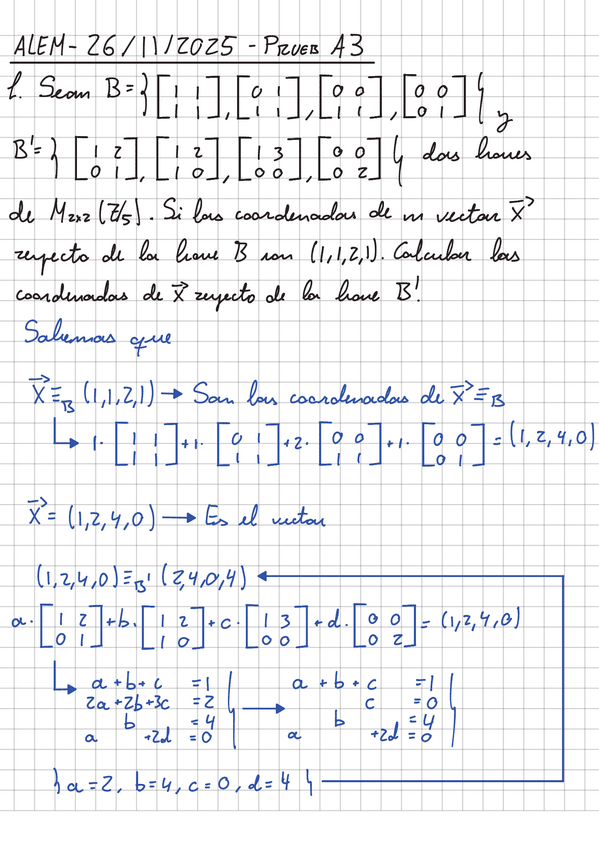 ALEM - 26/11/2025 - PRUEB A3
1. Sean B = { [1 1; 1 1], [0 1; 1 1], [0 0; 1 1], [0 0; 0 1] } y
B' = { [1 2; 0 1], [1 2; 1 0], [1 3; 0 0], [0 0; 0 2] } dos bases
de M2x2 (Z/5). Si las coordenadas de un vector x⃗
respecto de la base B son (1,1,2,1). Calcular las
coordenadas de x⃗ respecto de la base B'.
Sabemos que
x⃗ ≡B (1,1,2,1) → Son las coordenadas de x⃗ ≡B
↳ 1·[1 1; 1 1] + 1·[0 1; 1 1] + 2·[0 0; 1 1] + 1·[0 0; 0 1] = (1,2,4,0)
x⃗ = (1,2,4,0) → Es el vector
(1,2,4,0) ≡B' (2,4,0,4) ←
a·[1 2; 0 1] + b·[1 2; 1 0] + c·[1 3; 0 0] + d·[0 0; 0 2] = (1,2,4,0)
↳ a + b + c = 1 } → a + b + c = 1 }
2a + 2b + 3c = 2 c = 0
b = 4 b = 4
a + 2d = 0 a + 2d = 0
{ a = 2, b = 4, c = 0, d = 4 }